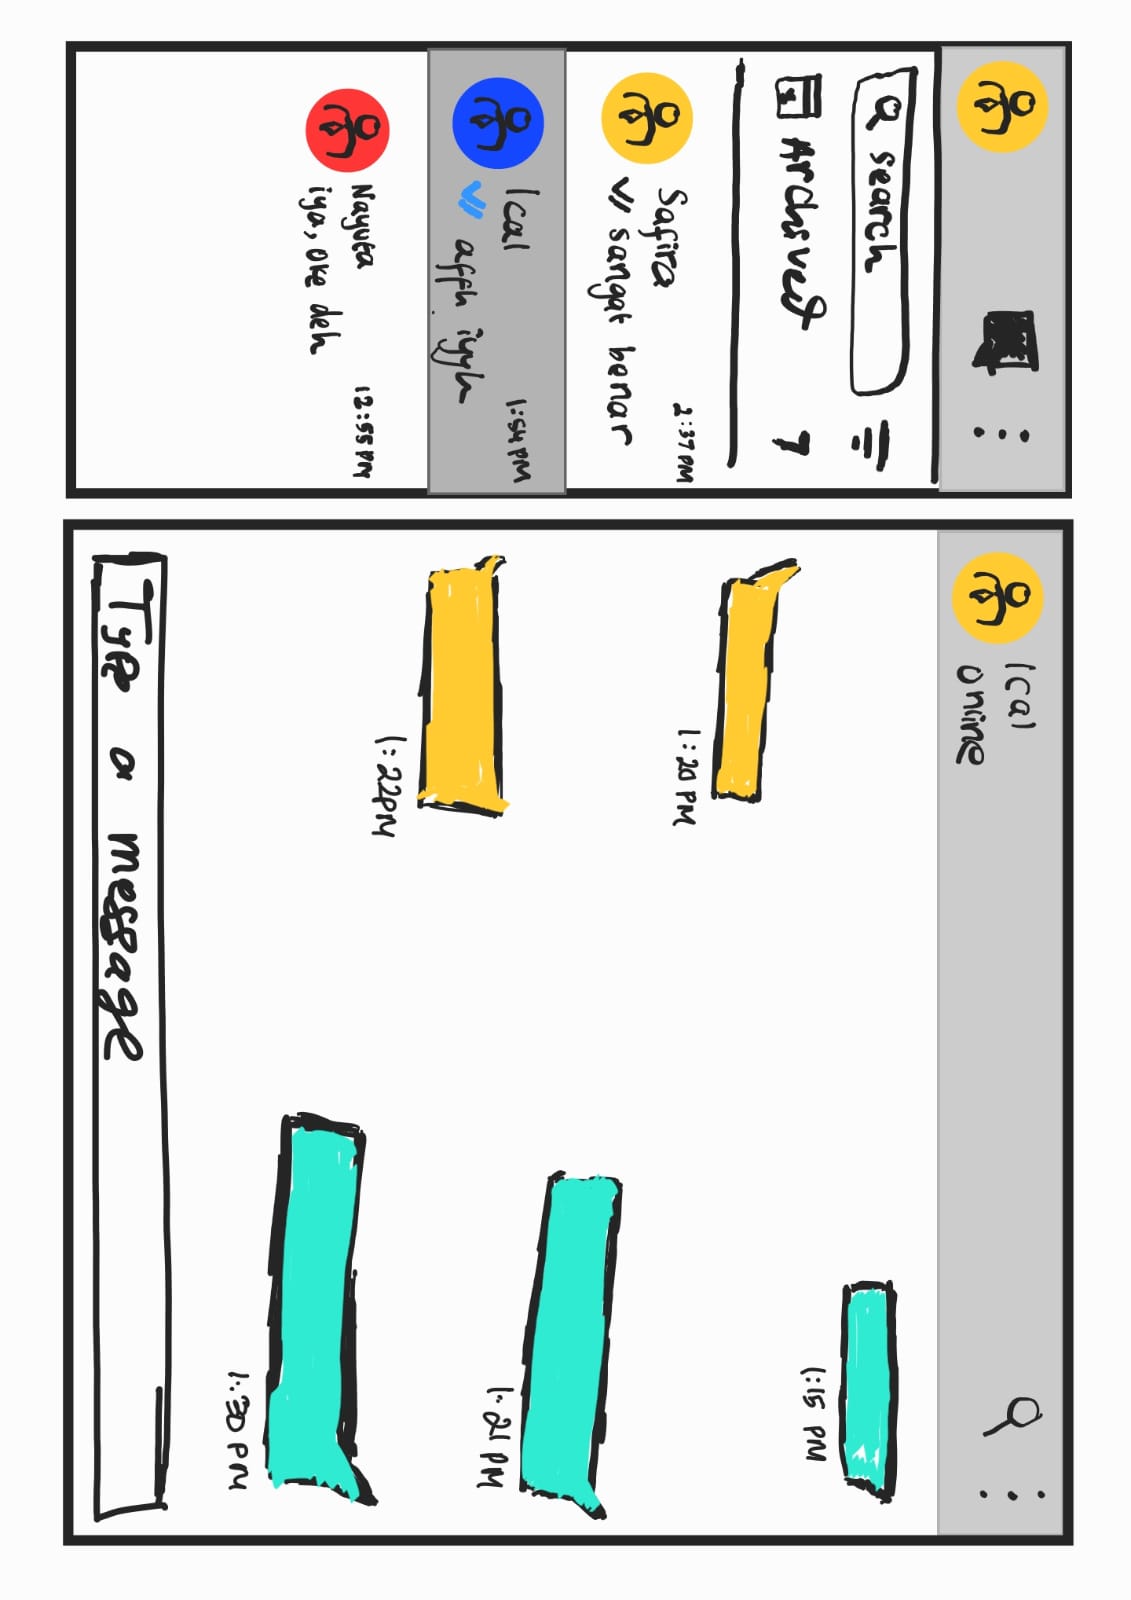 search
Archived 7
Safira 2:37 PM
sangat benar
Ical 1:54 PM
affh iyyh
Nayuta 12:55 PM
iya, oke deh
Ical
online
1:15 PM
1:20 PM
1:21 PM
1:22 PM
1:30 PM
Type a message